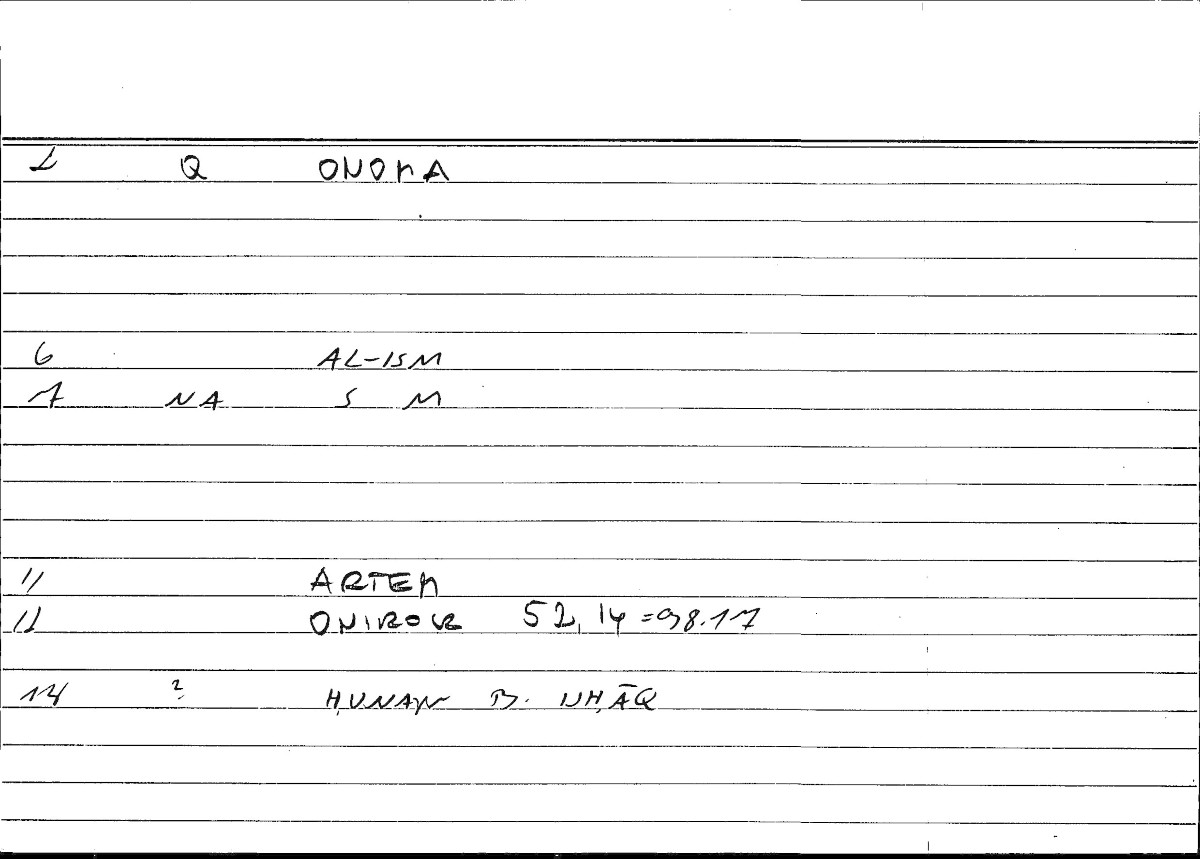 1 Q ONOMA
6 AL-ISM
7 NA S M
11 ARTEM
12 ONIROCR 52,14=98.17
14 ? ḤUNAYN B. ISḤĀQ